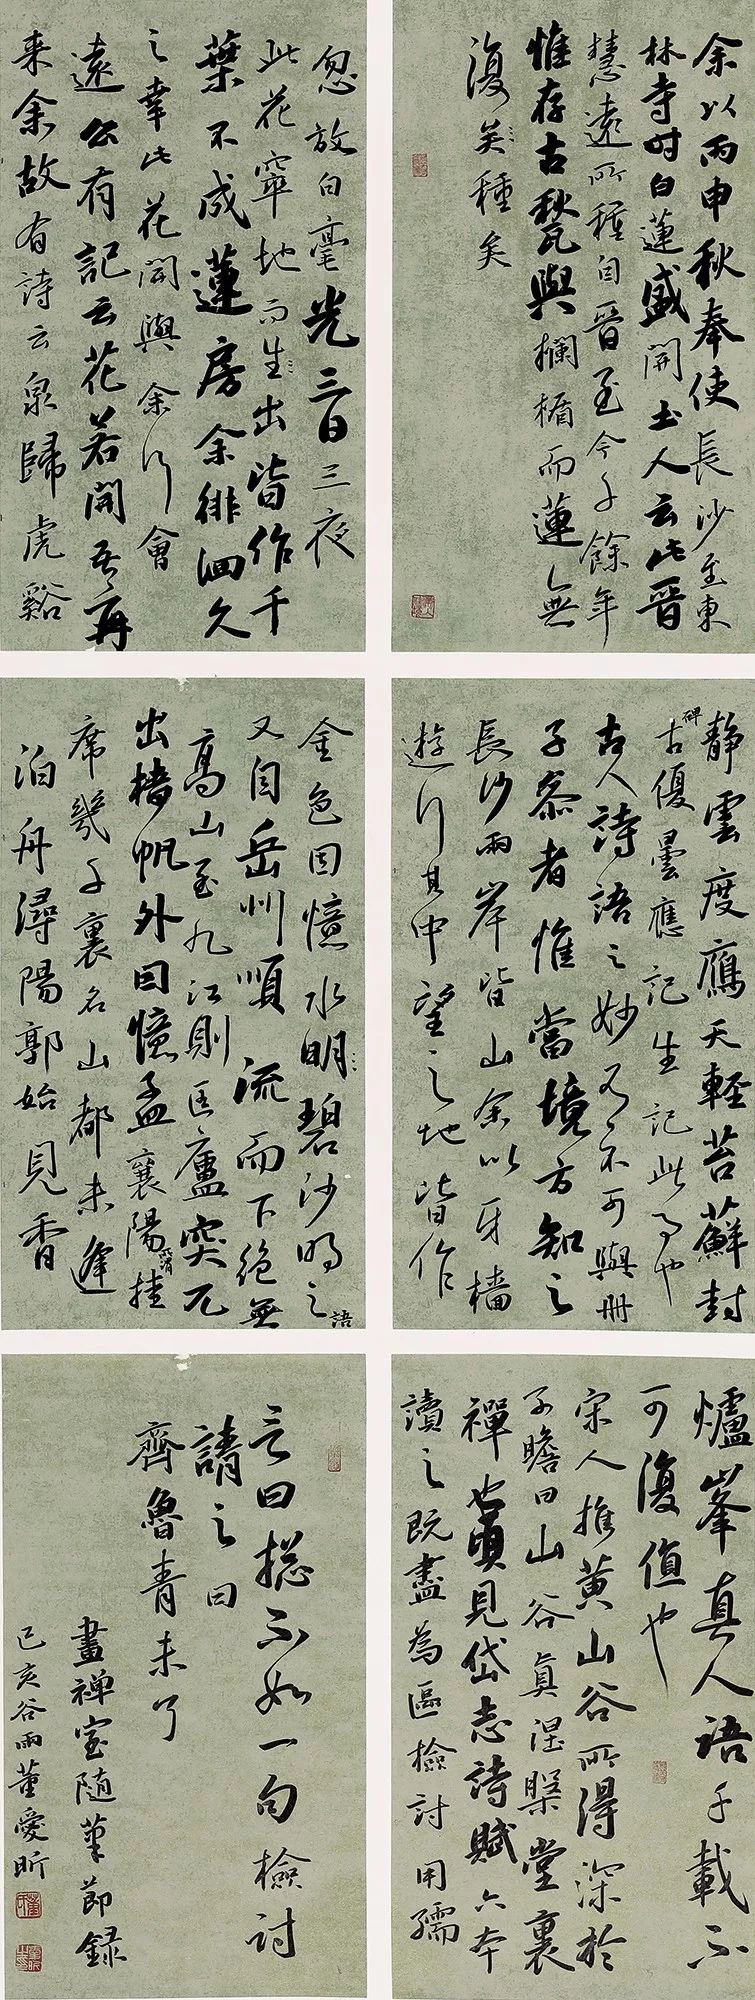 余以丙申秋奉使長沙至東
林寺時白蓮盛開土人云此晉
慧遠所種自晉至今千餘年
惟存古甃與欄楯而蓮無
復矣種矣
忽放白毫光三日三夜
此花窣地而生出皆作千
葉不成蓮房余徘徊久
之幸此花開與余行會
遠公有記云花若開吾再
来余故有詩云泉歸虎谿
靜雲度鴈天輕苔蘚封
碑古優曇應記生記此事也
古人詩語之妙有不可與冊
子參者惟當境方知之
長沙兩岸皆山余以牙檣
遊行其中望之地皆作
金色因憶水明碧沙明之語
又自岳州順流而下絶無
高山至九江則匡廬突兀
出檣帆外因憶孟襄陽所謂挂
席幾千裏名山都未逢
泊舟潯陽郭始見香
爐峯真人語千載不
可復值也
宋人推黄山谷所得深於
子瞻曰山谷真涅槃堂裏
禪也頃見岱志詩賦六本
讀之既盡為區檢討用孺
言曰摠不如一句檢討
請之曰
齊魯青未了
畫禅室随筆節録
己亥谷雨董愛昕